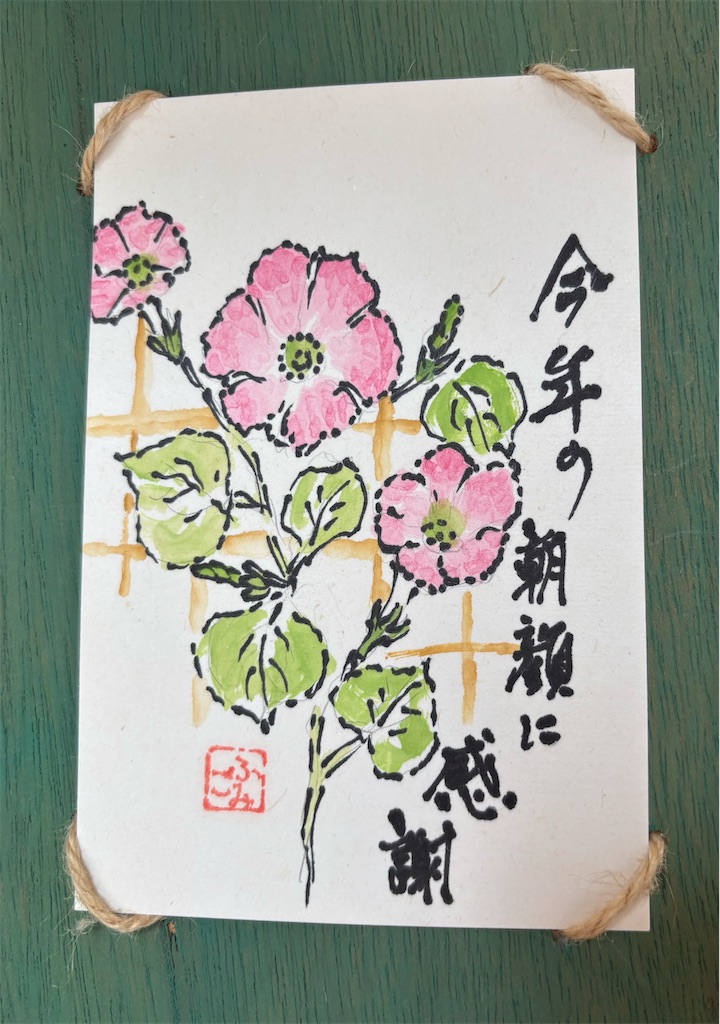 今年の朝顔に
感謝
ふみこ